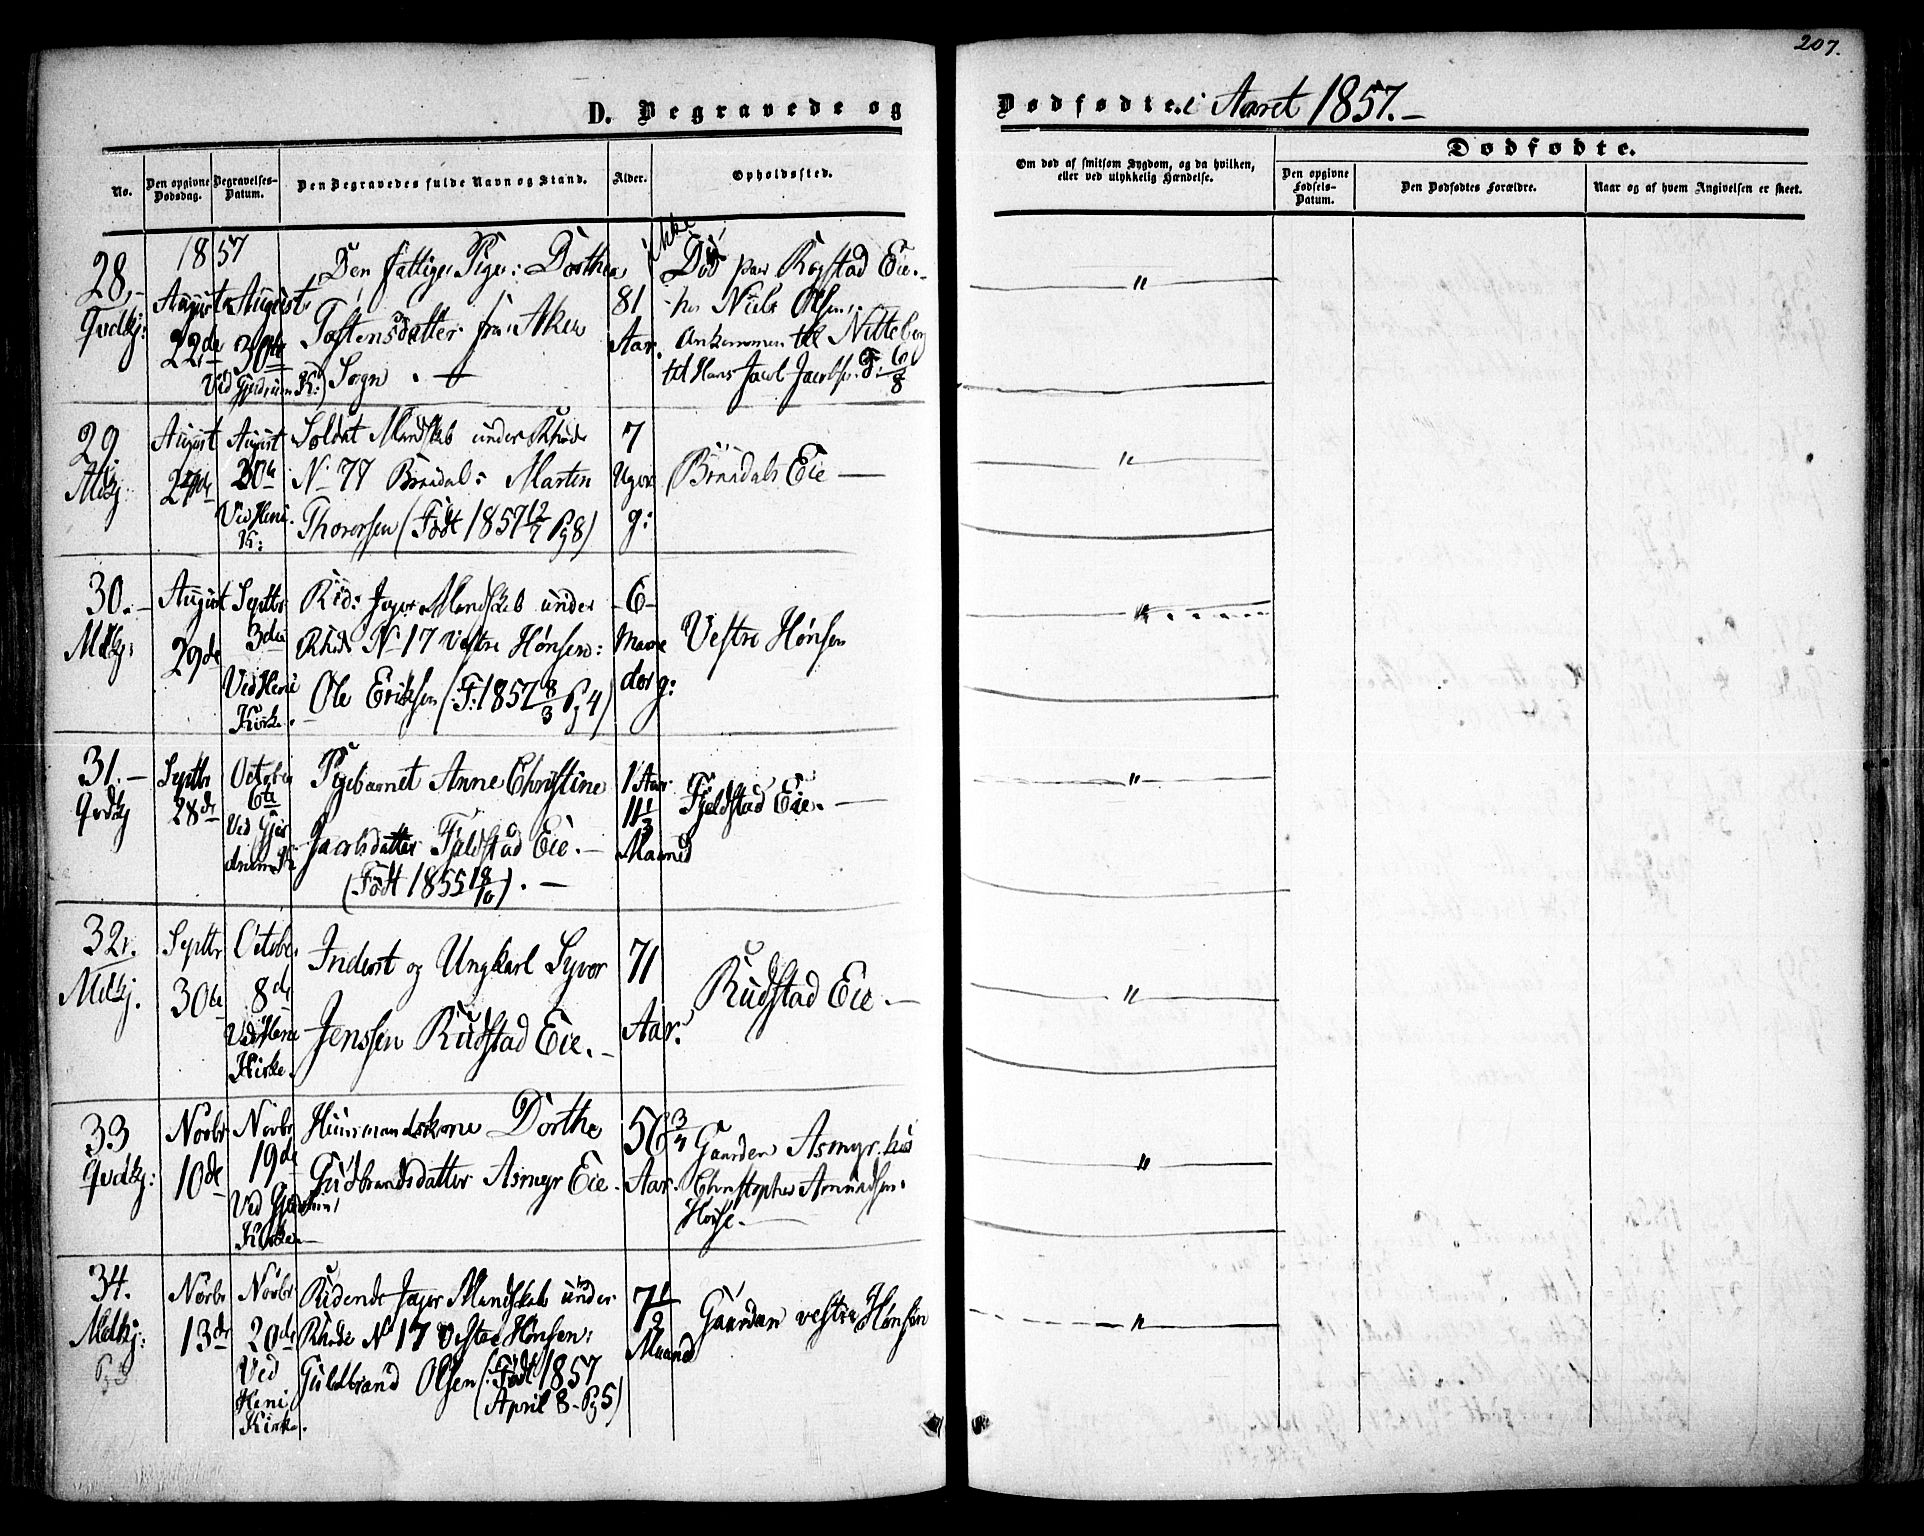 207.
D. Begravede og Dødfødte i Aaret 1857.-
No.
Den opgivne Dødsdag.
Begravelses-Datum.
Den Begravedes fulde Navn og Stand.
Alder.
Opholdssted.
Om død af smitsom Sygdom, og da hvilken, eller ved ulykkelig Hændelse.
Dødfødte.
Den opgivne Fødsels-Datum.
Den Dødfødtes Forældre.
Naar og af hvem Angivelsen er skeet.
1857
28,-
August 22de
August 30te
Ved Gjerdrum K:)
Den fattige Pige: Dorthea
Tostensdatter fra Aker
Sogn . —
81
Aar.
ikke
Død paa Rogstad Eie.-
hos Niels Olsen,
Ankommen til Nitteberg
til Hans Jacob Jacobsen
"
29.
Mdkj
August
27de
August
30te
Ved Heni
K:
Soldat Mandskab under Rhode
No 77 Braadal: Marten
Thoresen (Født 1857 12/7 Pg 8)
7
Uger
g:
Braadals Eie —
"
30.-
Mdkj:
August
29de
Septbr
3die
Ved Heni
Kirke.
Rid: Jæger Mandskab under
Rhode No 17 Vestre Hønsen:
Ole Eriksen (F: 1857 8/3 Pg 4)
-6-
Maane
der g:
Vestre Hønsen
"
31.-
Qvdkj
Septbr
28de
October
6te
Ved Gjer
drum K
Pigebarnet Anne Christine
Jacobsdatter Fjeldstad Eie.-
(Født 1855 18/10). —
1 Aar
11 1/3
Maaned
Fjeldstad Eie. —
"
32.
Mdkj.
Septbr
30te
October
8de
Ved Heni
Kirke.
Inderst og Ungkarl Syver
Jenssen Rudstad Eie.-
71
Aar.
Rudstad Eie.-
"
33
Qvdkj:
Novbr
10de
Novbr
19de
Ved Gjerdrum
Kirke.-
Huusmandskone Dorthe
Gudbrandsdatter Asmyr Eie.
56 3/4
Aar.
Gaarden Asmyr hos
Christopher Amundsen
"
34.
Mdkj:
Novbr
13de
Novbr
20de
Ved
Heni
Kirke.
Ridende Jæger Mandskab under
Rhode No 17 Vestre Hønsen:
Guldbrand Olsen (:Født 1857
April 8- Pg 5)
7 1/2
Maaned
Gaarden vestre Hønsen
"